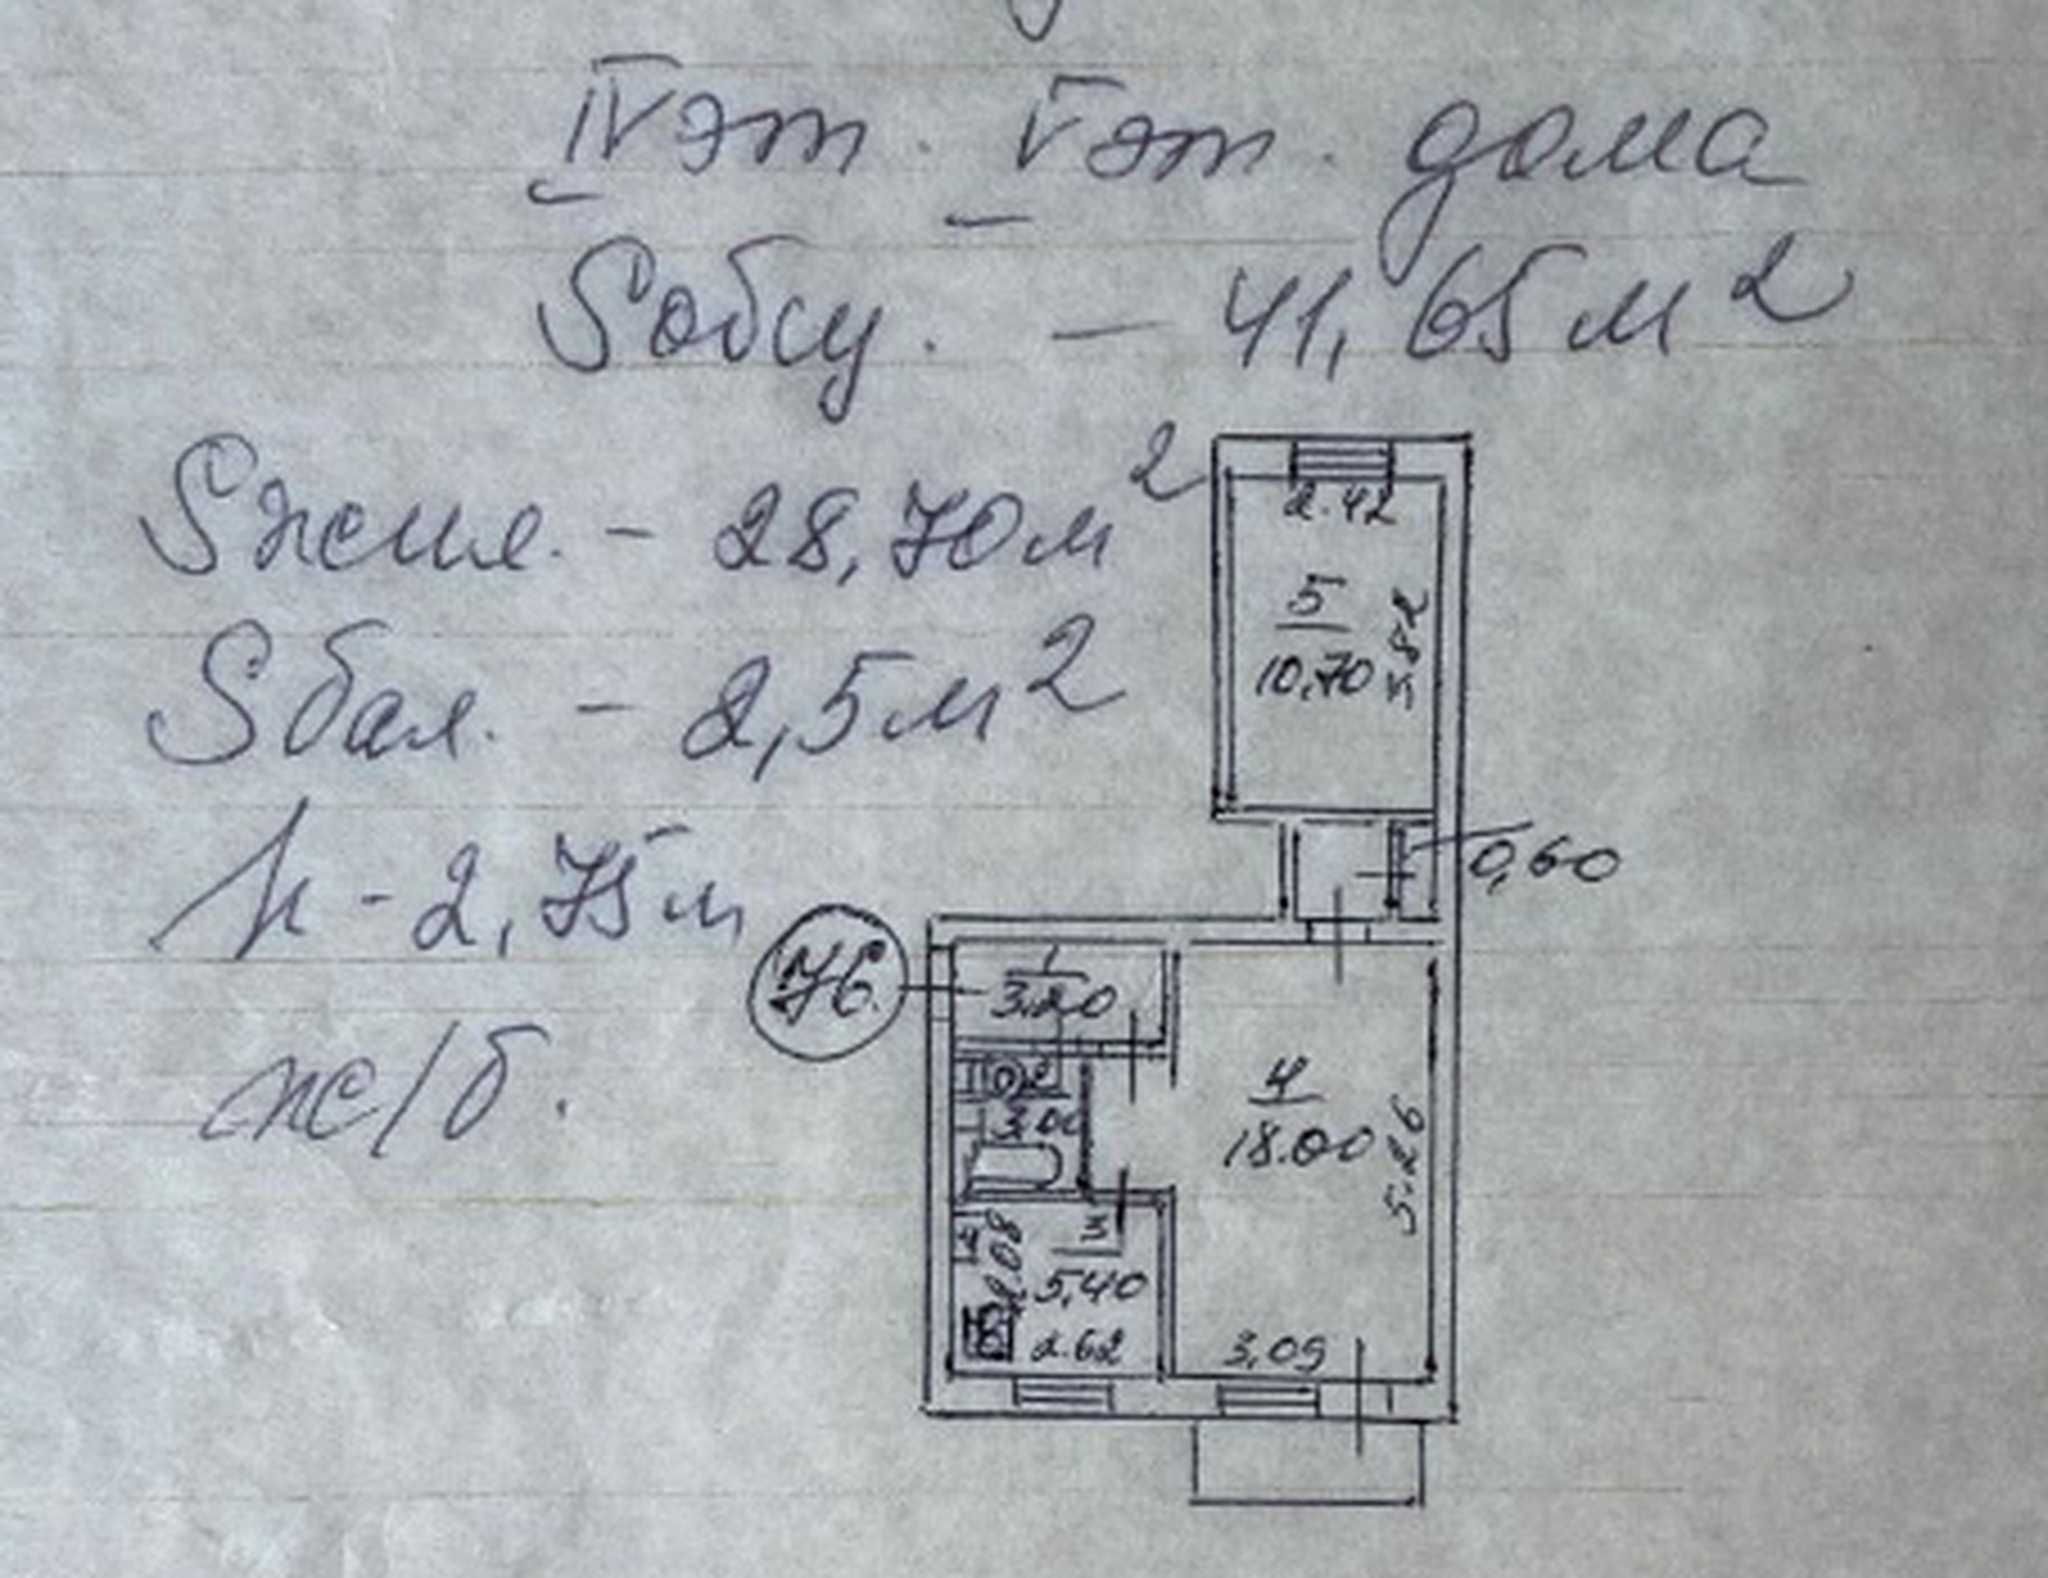 IV эт. V эт. дома
Sобщ. – 41,65 м²
Sжил. – 28,70 м²
Sбал. – 2,5 м²
h - 2,75 м
ж/б.
2.42
5
10,70
0,60
76.
1
3.20
3.00
4
18.00
5.26
3
5,40
2.08
2.62
3,09